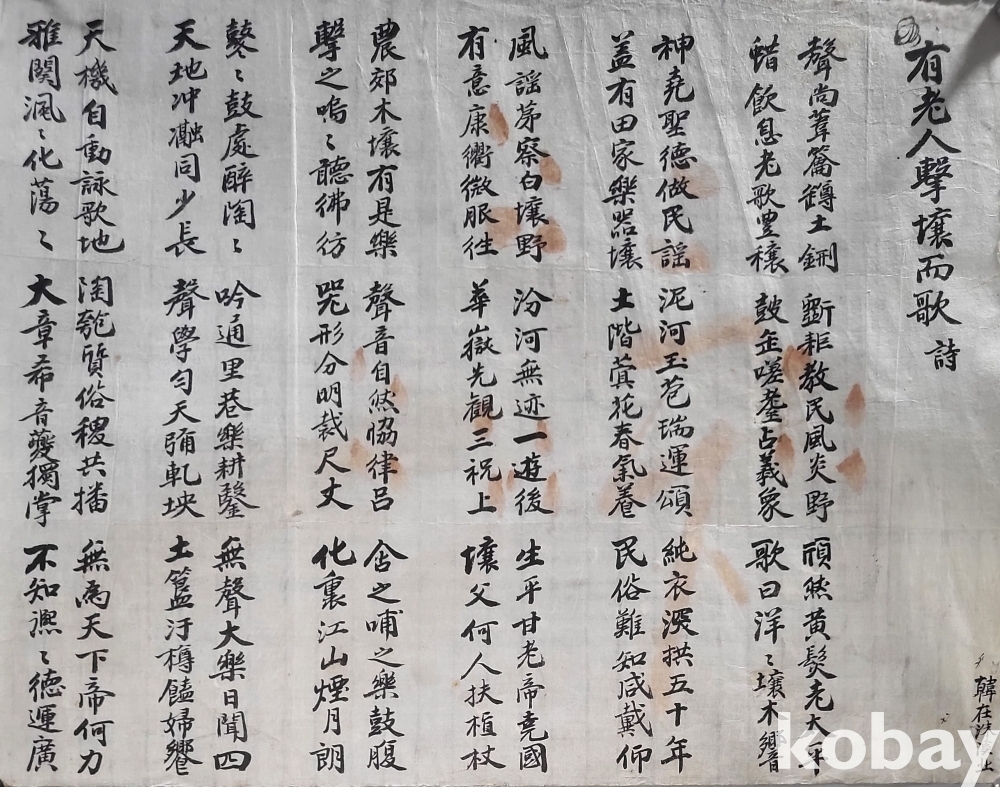 有老人擊壤而歌 詩
聲尚葦籥鐏土鉶 斲耒教民風炎野 頎然黃髮老大平
蜡飲息老歌豊穰 鼓缶嗟耋占羲象 歌曰洋〻壤木響
神堯聖德做民謠 泥河玉苞瑞運頌 純衣深拱五十年
盖有田家樂器壤 土階蓂花春氣養 民俗難知咸戴仰
風謠茅察白壤野 汾河無迹一遊後 生平甘老帝堯國
有意康衢微服往 華嶽先觀三祝上 壤父何人扶植杖
農郊木壤有是樂 聲音自然恊律呂 含之哺之樂鼓腹
擊之嗚〻聽彿彷 咒形分明裁尺丈 化裏江山煙月朗
鼕〻鼓處醉陶〻 吟通里巷樂耕鑿 無聲大樂日聞四
天地冲瀜同少長 聲學勻天彌軋坱 土簋汙樽饁婦饗
天機自動詠歌地 陶匏質俗稷共播 無為天下帝何力
雅関渢〻化蕩〻 大章希音夔獨掌 不知皥〻德運廣
kobay